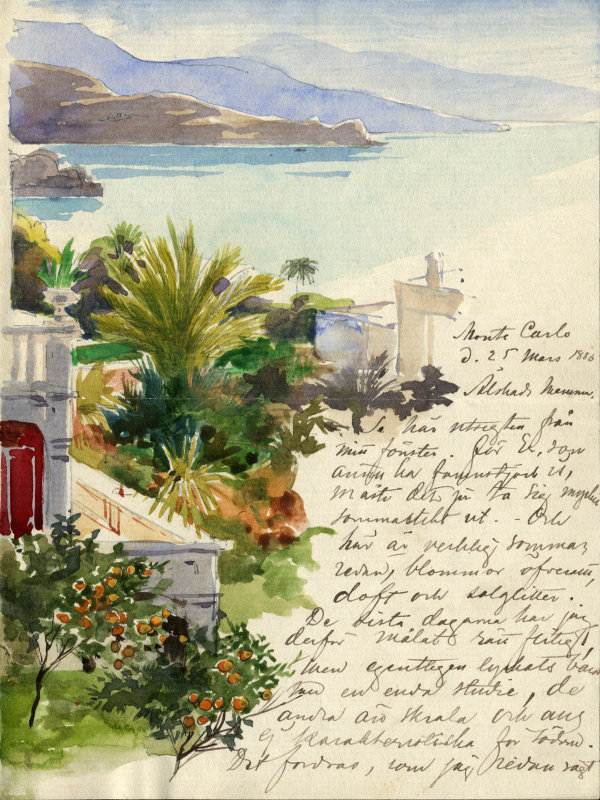 Monte Carlo
d. 25 Mars 1886
Älskade Mamma,
Se här utsigten från
mitt fönster. För Er, som
ännu ha famnstjock is,
måste det ju ta sig mycket
sommarlikt ut. - Och
här är verklig sommar
redan, blommor öfverallt,
doft och solglitter.
De sista dagarna har jag
derför målat rätt flitigt,
men egentligen lyckats bara
med en enda studie, de
andra äro skrala och äng
ej karakteristiska för
Det fordras, som jag redan sagt